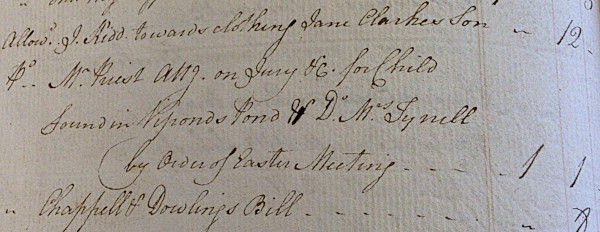 Allow'd. J. Kidd. towards clothing Jane Clarkes Son " 12 -
Pd.. Mr. Priest Attg. on Jury &c. for Child
found in Viponds Pond & Do. Mrs. Tynell
by Order of Easter Meeting - - - - 1 1
" Chappell & Dowlings Bill - - - - - - " 8